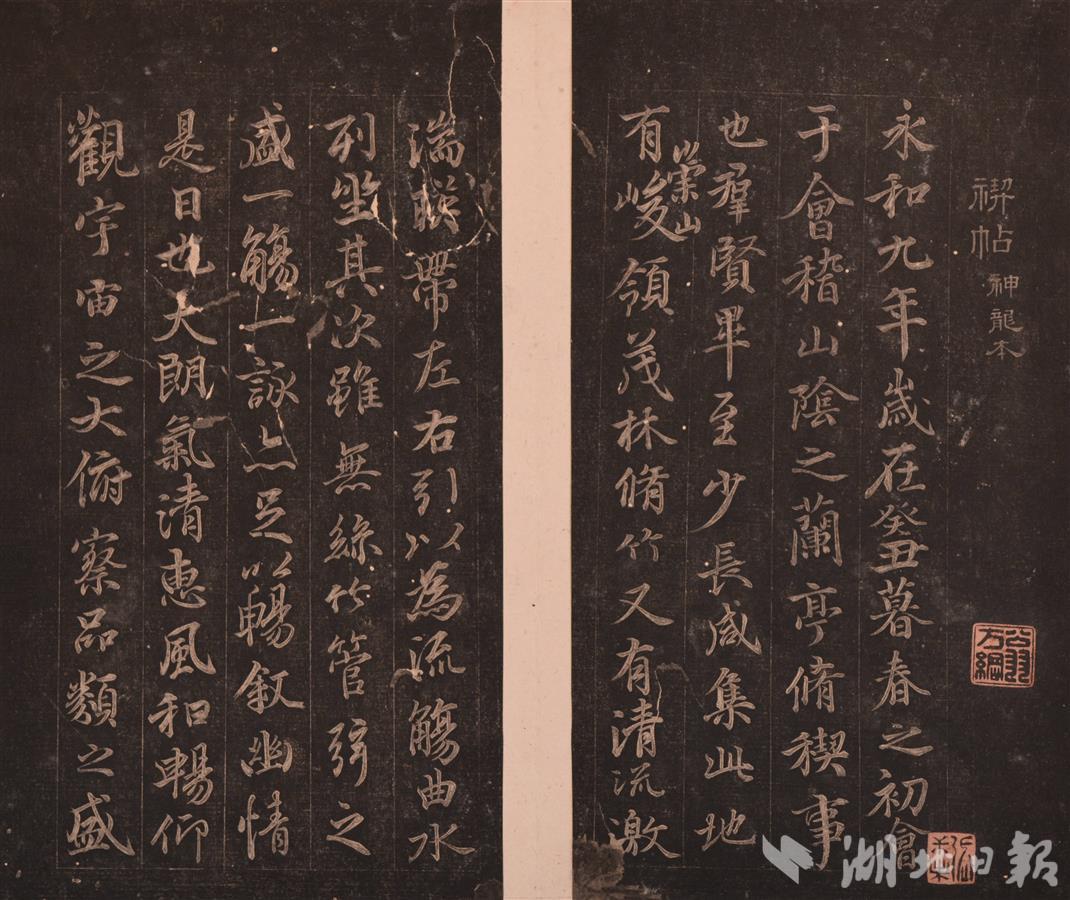 禊帖 神龍本
永和九年歲在癸丑暮春之初會
于會稽山陰之蘭亭脩稧事
也羣賢畢至少長咸集此地
有崇山峻領茂林脩竹又有清流激
湍暎帶左右引以為流觴曲水
列坐其次雖無絲竹管弦之
盛一觴一詠亦足以暢敘幽情
是日也天朗氣清惠風和暢仰
觀宇宙之大俯察品類之盛
翁方綱
湖北日報